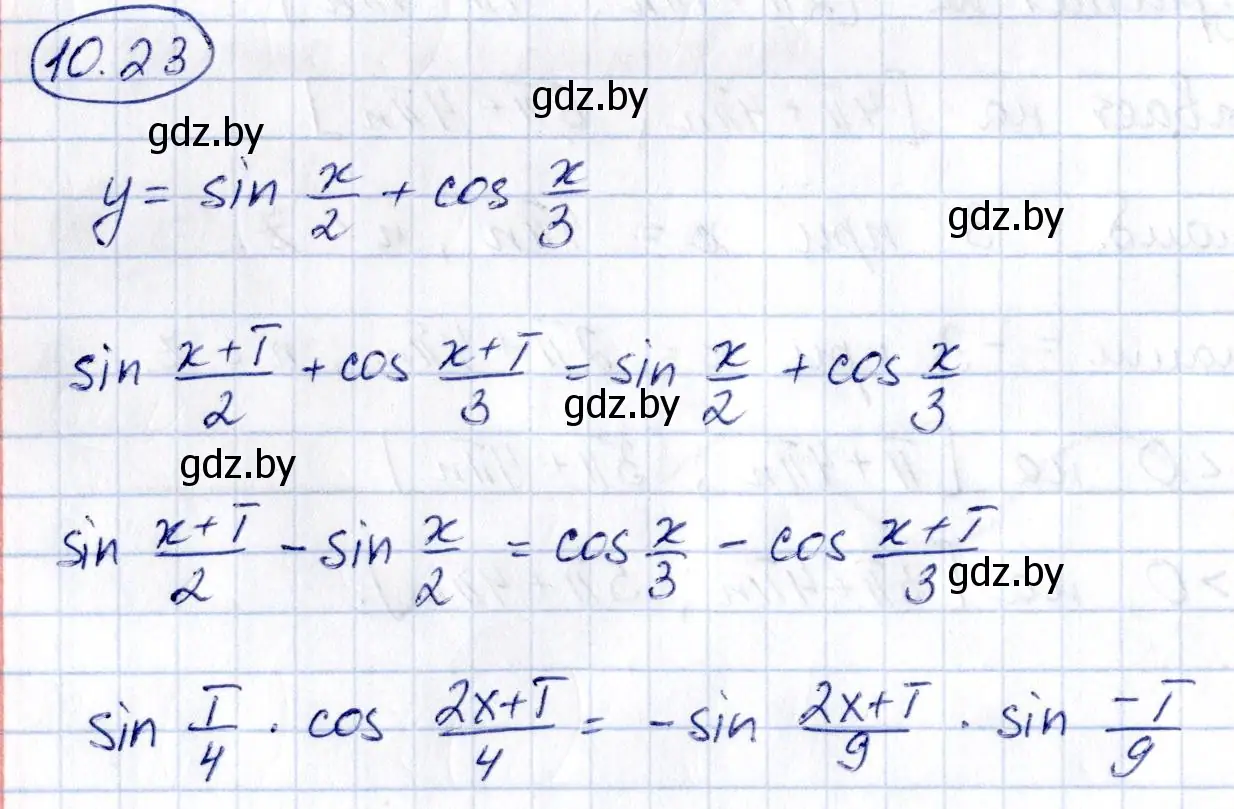 10.23
gdz.by
gdz.by
y = sin x/2 + cos x/3
gdz.by
sin (x+T)/2 + cos (x+T)/3 = sin x/2 + cos x/3
gdz.by
gdz.by
sin (x+T)/2 - sin x/2 = cos x/3 - cos (x+T)/3
gdz.by
sin T/4 · cos (2x+T)/4 = - sin (2x+T)/9 · sin (-T)/9